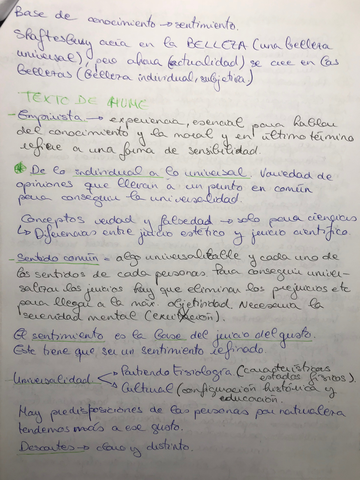 Base de conocimiento → sentimiento.
Shaftesbury creía en la BELLEZA (una belleza
universal) pero ahora (actualidad) se cree en las
bellezas (belleza individual, subjetiva)
TEXTO DE HUME
- Empirista → experiencia, esencial para hablar
del conocimiento y la moral y en último término
refiere a una forma de sensibilidad.
De lo individual a lo universal. Variedad de
opiniones que llevan a un punto en común
para conseguir la universalidad.
Conceptos verdad y falsedad → solo para ciencias
↳ Diferencias entre juicio estético y juicio científico.
- Sentido común = algo universalizable y cada uno de
los sentidos de cada personas. Para conseguir univer-
salizar los juicios hay que eliminar los prejuicios etc
para llegar a la máx objetividad. Necesaria la
serenidad mental
El sentimiento es la base del juicio del gusto.
Este tiene que ser un sentimiento refinado.
Universalidad < Partiendo Fisiología (características
estados físicos)
Cultural (configuración histórica y
educación.
Hay predisposiciones de las personas por naturaleza
tendemos más a ese gusto.
Descartes → claro y distinto.